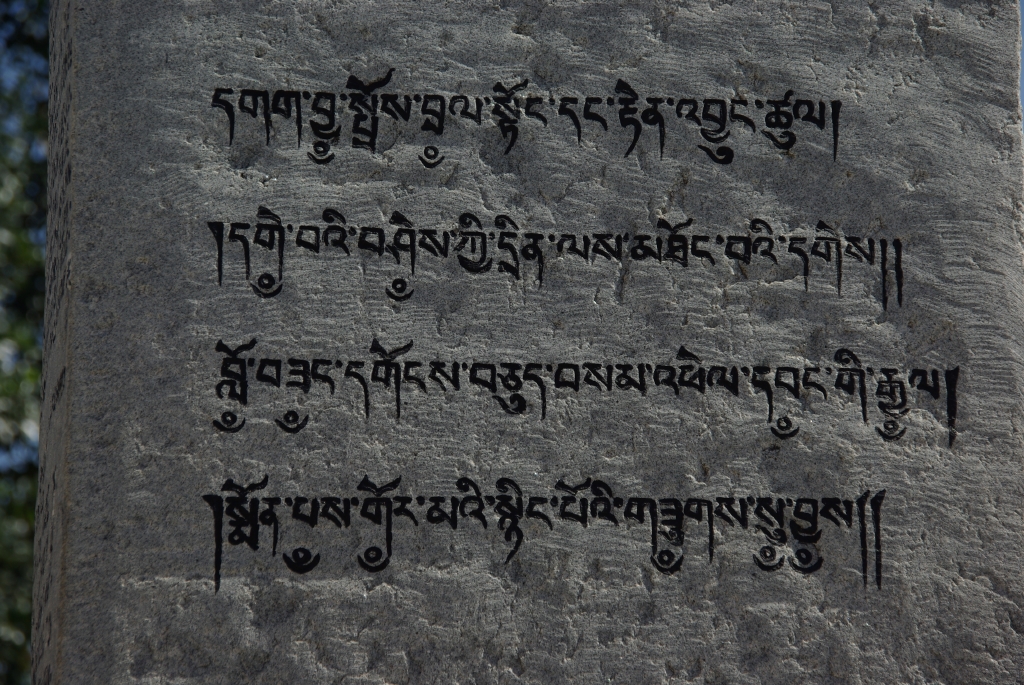 དགག་བྱ་སྤྲོས་བྲལ་སྟོང་དང་རྟེན་འབྱུང་ཚུལ།
།དགེ་བའི་བཤེས་ཀྱི་དྲིན་ལས་མཐོང་བའི་དགེས།།
བློ་བཟང་དགོངས་བཅུད་བསམ་འཕེལ་དབང་གི་རྒྱལ།
།སྨོན་པས་གོར་མའི་སྙིང་པོའི་གཟུགས་སུ་བྱས།།